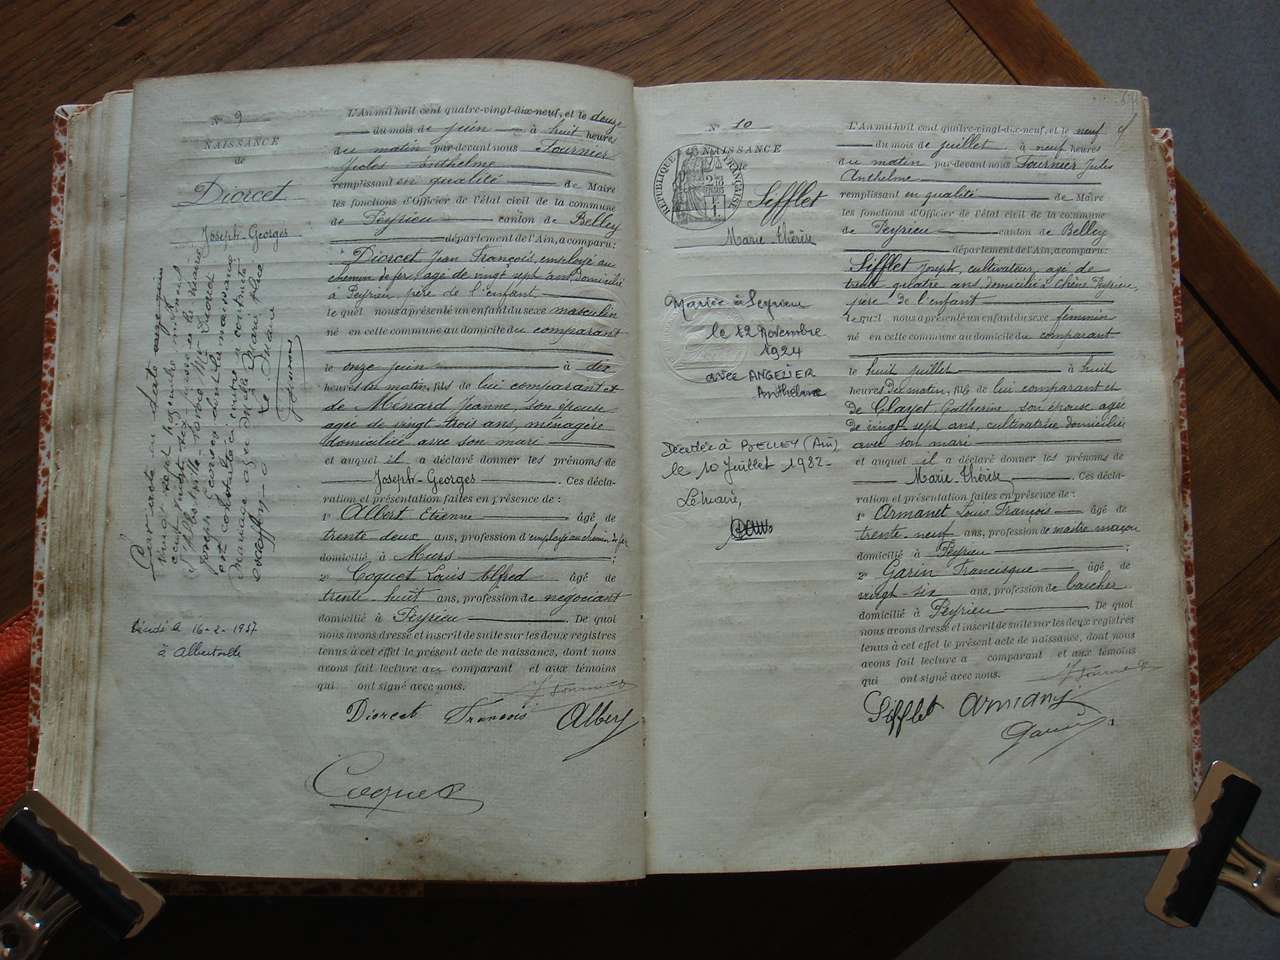 N° 9
NAISSANCE
de
Diorcet
Joseph-Georges
Par acte en date
décédé le 16-2-1957
à Albertville
L'An mil huit cent quatre-vingt-dix-neuf, et le douze
du mois de juin à huit heures
du matin par-devant nous Fournier
Jules Anthelme
remplissant en qualité de Maire
les fonctions d'Officier de l'état civil de la commune
de Peyrieu canton de Belley
département de l'Ain, a comparu :
Diorcet Jean François, employé au
chemin de fer, âgé de vingt sept ans, domicilié
à Peyrieu, père de l'enfant
lequel nous a présenté un enfant du sexe masculin
né en cette commune au domicile du comparant
le onze juin à dix
heures du matin, fils de lui comparant et
de Ménard Jeanne, son épouse
agée de vingt trois ans, ménagère
domiciliée avec son mari
et auquel il a déclaré donner les prénoms de
Joseph-Georges. Ces décla-
ration et présentation faites en présence de :
1° Albert Etienne âgé de
trente deux ans, profession d'employé au chemin de fer
domicilié à Murs ;
2° Coquet Louis Alfred âgé de
trente huit ans, profession de négociant
domicilié à Peyrieu. De quoi
nous avons dressé et inscrit de suite sur les deux registres
tenus à cet effet le présent acte de naissance, dont nous
avons fait lecture au comparant et aux témoins
qui ont signé avec nous. J Fournier
Diorcet François Albert
Coquet
N° 10
NAISSANCE
de
RÉPUBLIQUE FRANÇAISE
Sifflet
Marie Thérèse
Mariée à Peyrieu
le 12 Novembre
1924
avec ANGELIER
Anthelme
Décédée à BELLEY (Ain)
le 10 Juillet 1982-
Le Maire,
L'An mil huit cent quatre-vingt-dix-neuf, et le neuf
du mois de juillet à neuf heures
du matin par-devant nous Fournier Jules
Anthelme
remplissant en qualité de Maire
les fonctions d'Officier de l'état civil de la commune
de Peyrieu canton de Belley
département de l'Ain, a comparu :
Sifflet Joseph, cultivateur, age de
trente quatre ans, domicilié à Chêne Peyrieu,
père de l'enfant
lequel nous a présenté un enfant du sexe féminin
né en cette commune au domicile du comparant
le huit juillet à huit
heures du matin, fils de lui comparant et
de Clayet Catherine son épouse agée
de vingt-sept ans, cultivatrice domiciliée
avec son mari
et auquel il a déclaré donner les prénoms de
Marie-Thérèse. Ces décla-
ration et présentation faites en présence de :
1° Armanet Louis François âgé de
trente-neuf ans, profession de maître maçon
domicilié à Peyrieu ;
2° Garin Francisque âgé de
vingt-six ans, profession de boucher
domicilié à Peyrieu. De quoi
nous avons dressé et inscrit de suite sur les deux registres
tenus à cet effet le présent acte de naissance, dont nous
avons fait lecture a comparant et aux témoins
qui ont signé avec nous. J Fournier
Sifflet Armanet
Garin